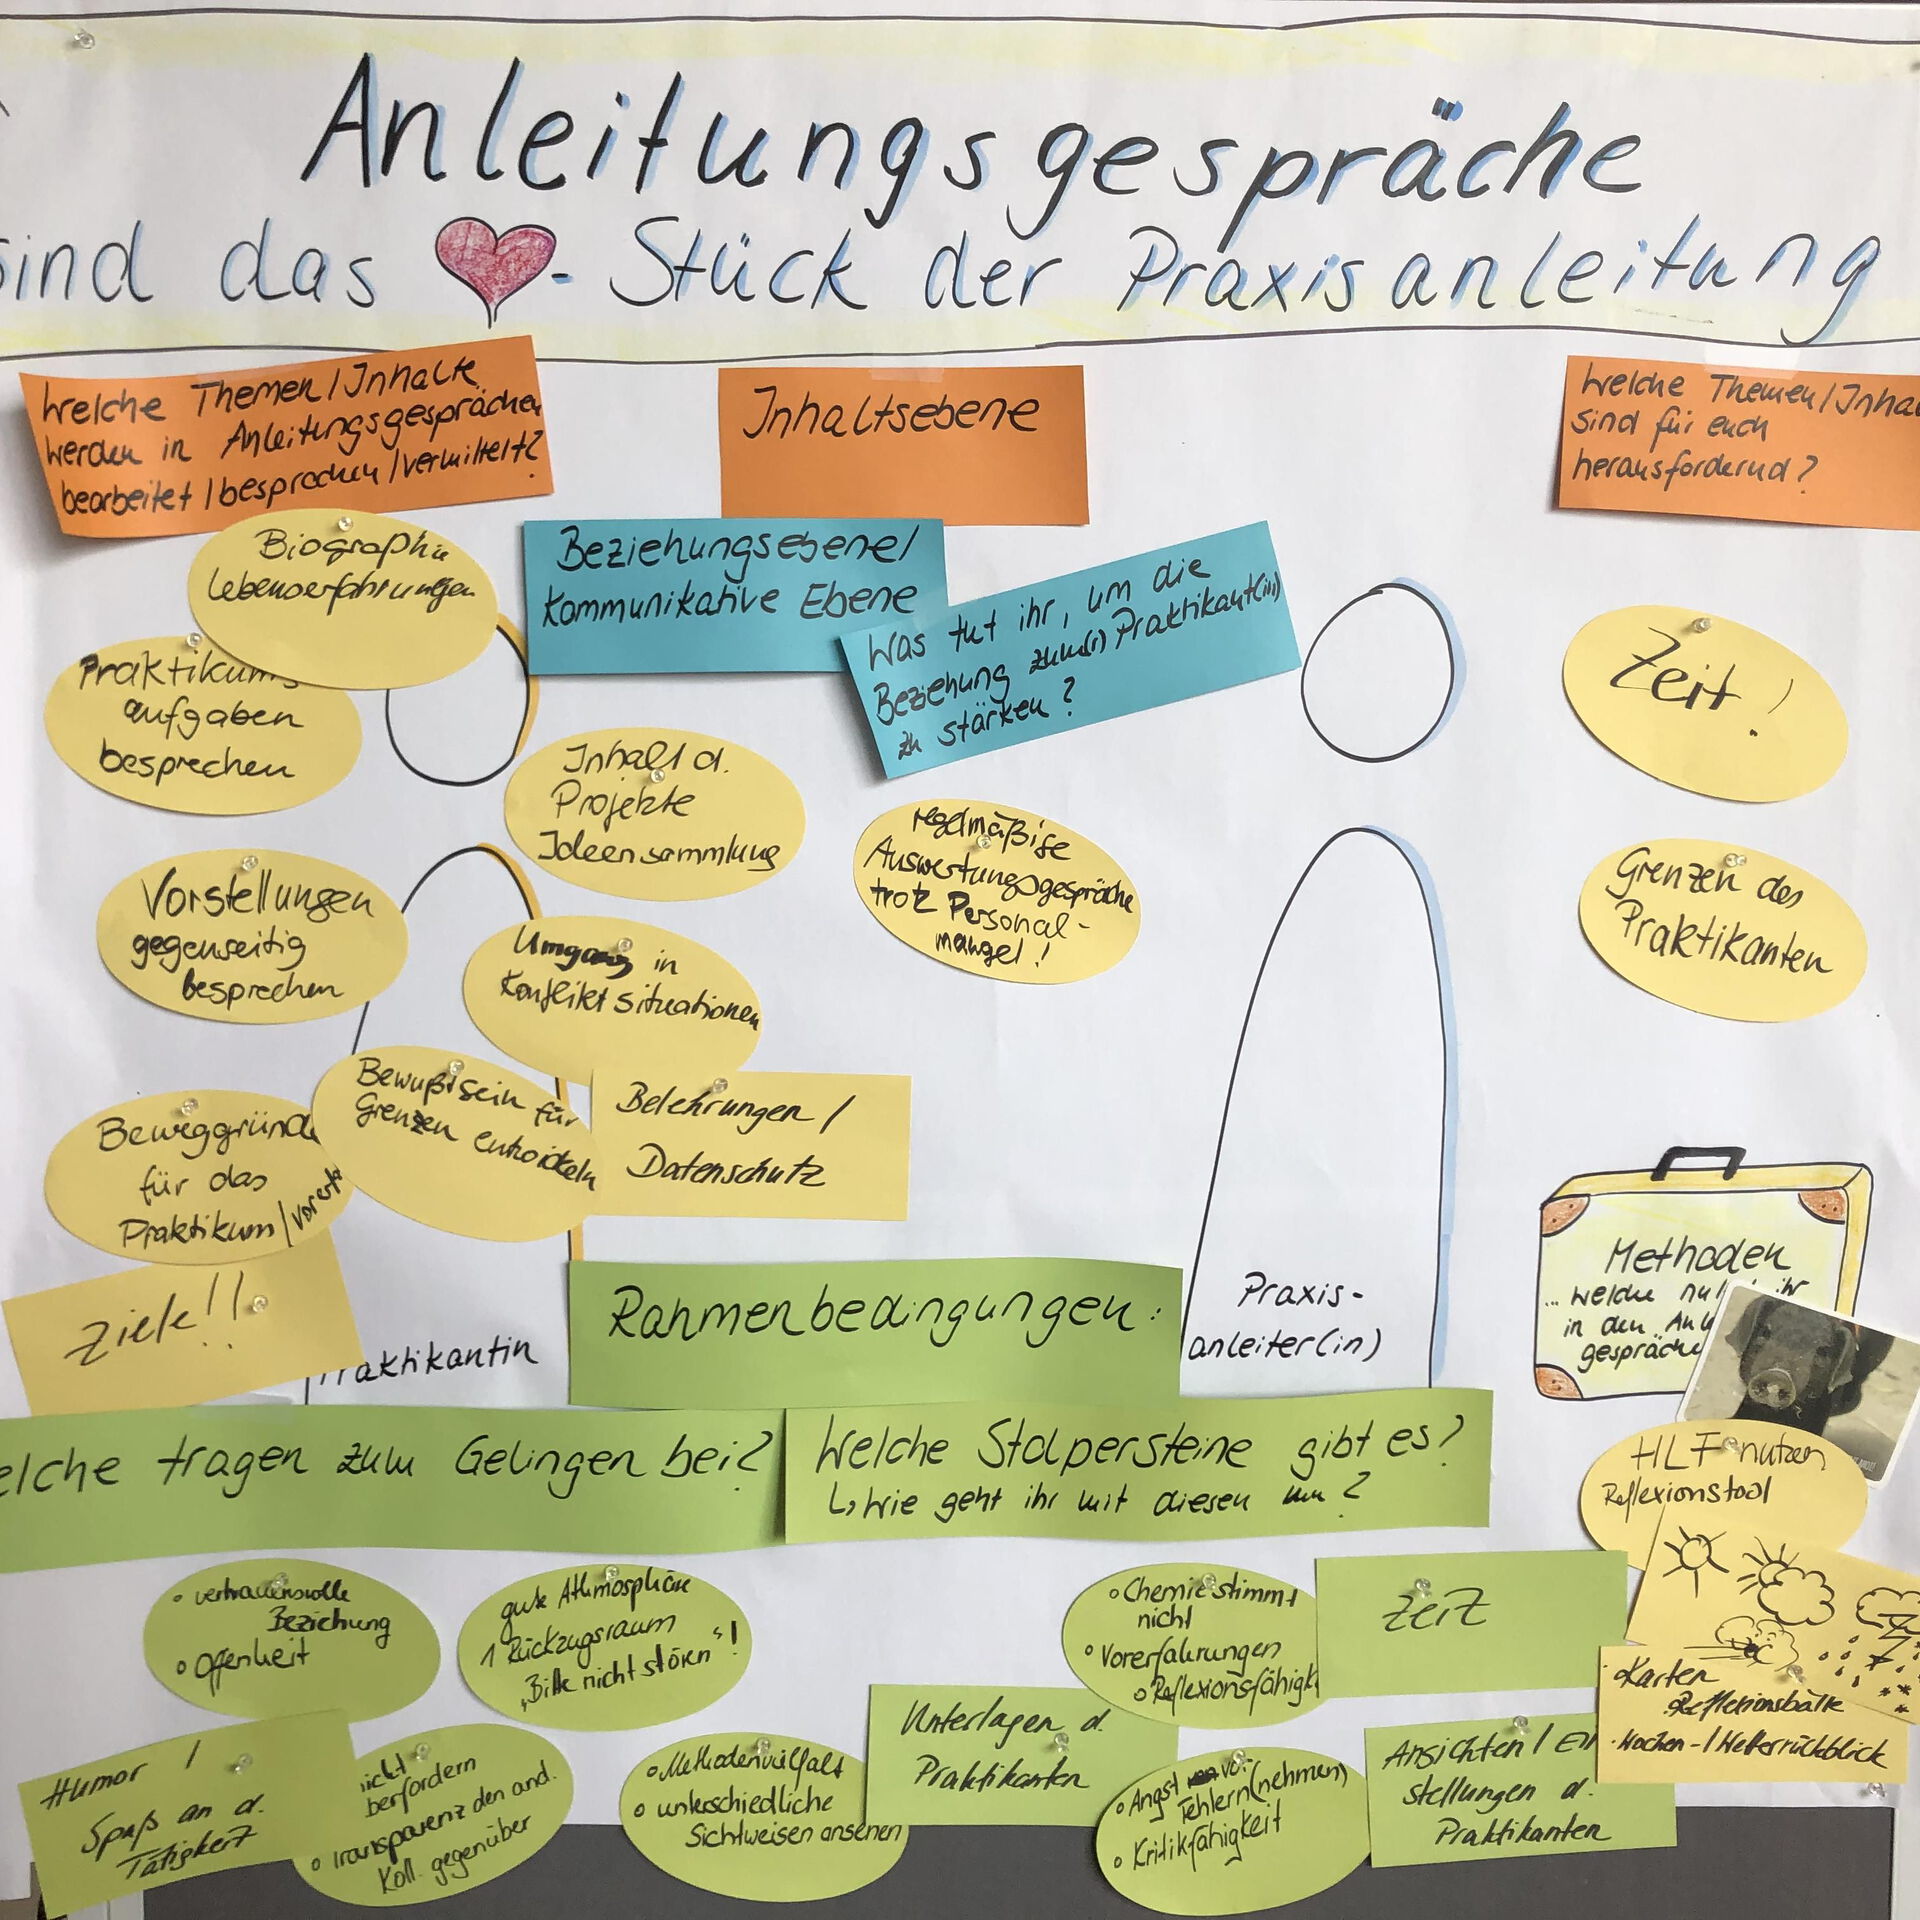 Anleitungsgespräche
sind das
- Stück der Praxisanleitung
Welche Themen/Inhalte
werden in Anleitungsgesprächen
bearbeitet/besprochen/vermittelt?
Inhaltsebene
Welche Themen/Inhal
sind für euch
herausfordernd?
Biographie
Lebenserfahrungen
Beziehungsebene/
Kommunikative Ebene
Was tut ihr, um die
Beziehung zum(r) Praktikant(in)
zu stärken?
Praktikums
aufgaben
besprechen
Zeit!
Inhalt d.
Projekte
Ideensammlung
regelmäßige
Auswertungsgespräche
trotz Personal-
mangel!
Grenzen des
Praktikanten
Vorstellungen
gegenseitig
besprechen
Umgang in
Konfliktsituationen
Bewußtsein für
Grenzen entwickeln
Belehrungen /
Datenschutz
Beweggründe
für das
Praktikum/
Ziele!!
raktikantin
Rahmenbedingungen:
Praxis-
anleiter(in)
Methoden
... welche ihr
in den
gespräche
elche tragen zum Gelingen bei?
Welche Stolpersteine gibt es?
↳ Wie geht ihr mit diesen um?
HLF nutzen
Reflexionstool
• vertrauensvolle
Beziehung
• Offenheit
gute Athmosphäre
1 Rückzugsraum
„Bitte nicht stören"!
• Chemie stimmt
nicht
• Vorerfahrungen
• Reflexionsfähigk
Zeit
• Karten
• Reflexionsbälle
• Wochen-/Wetterrückblick
Humor /
Spaß an d.
Tätigkeit
icht
berfordern
• Transparenz den and.
Koll. gegenüber
• Methodenvielfalt
• unterschiedliche
Sichtweisen ansehen
Unterlagen d.
Praktikanten
• Angst vor
Fehlern (nehmen)
• Kritikfähigkeit
Ansichten / Ein
stellungen d.
Praktikanten